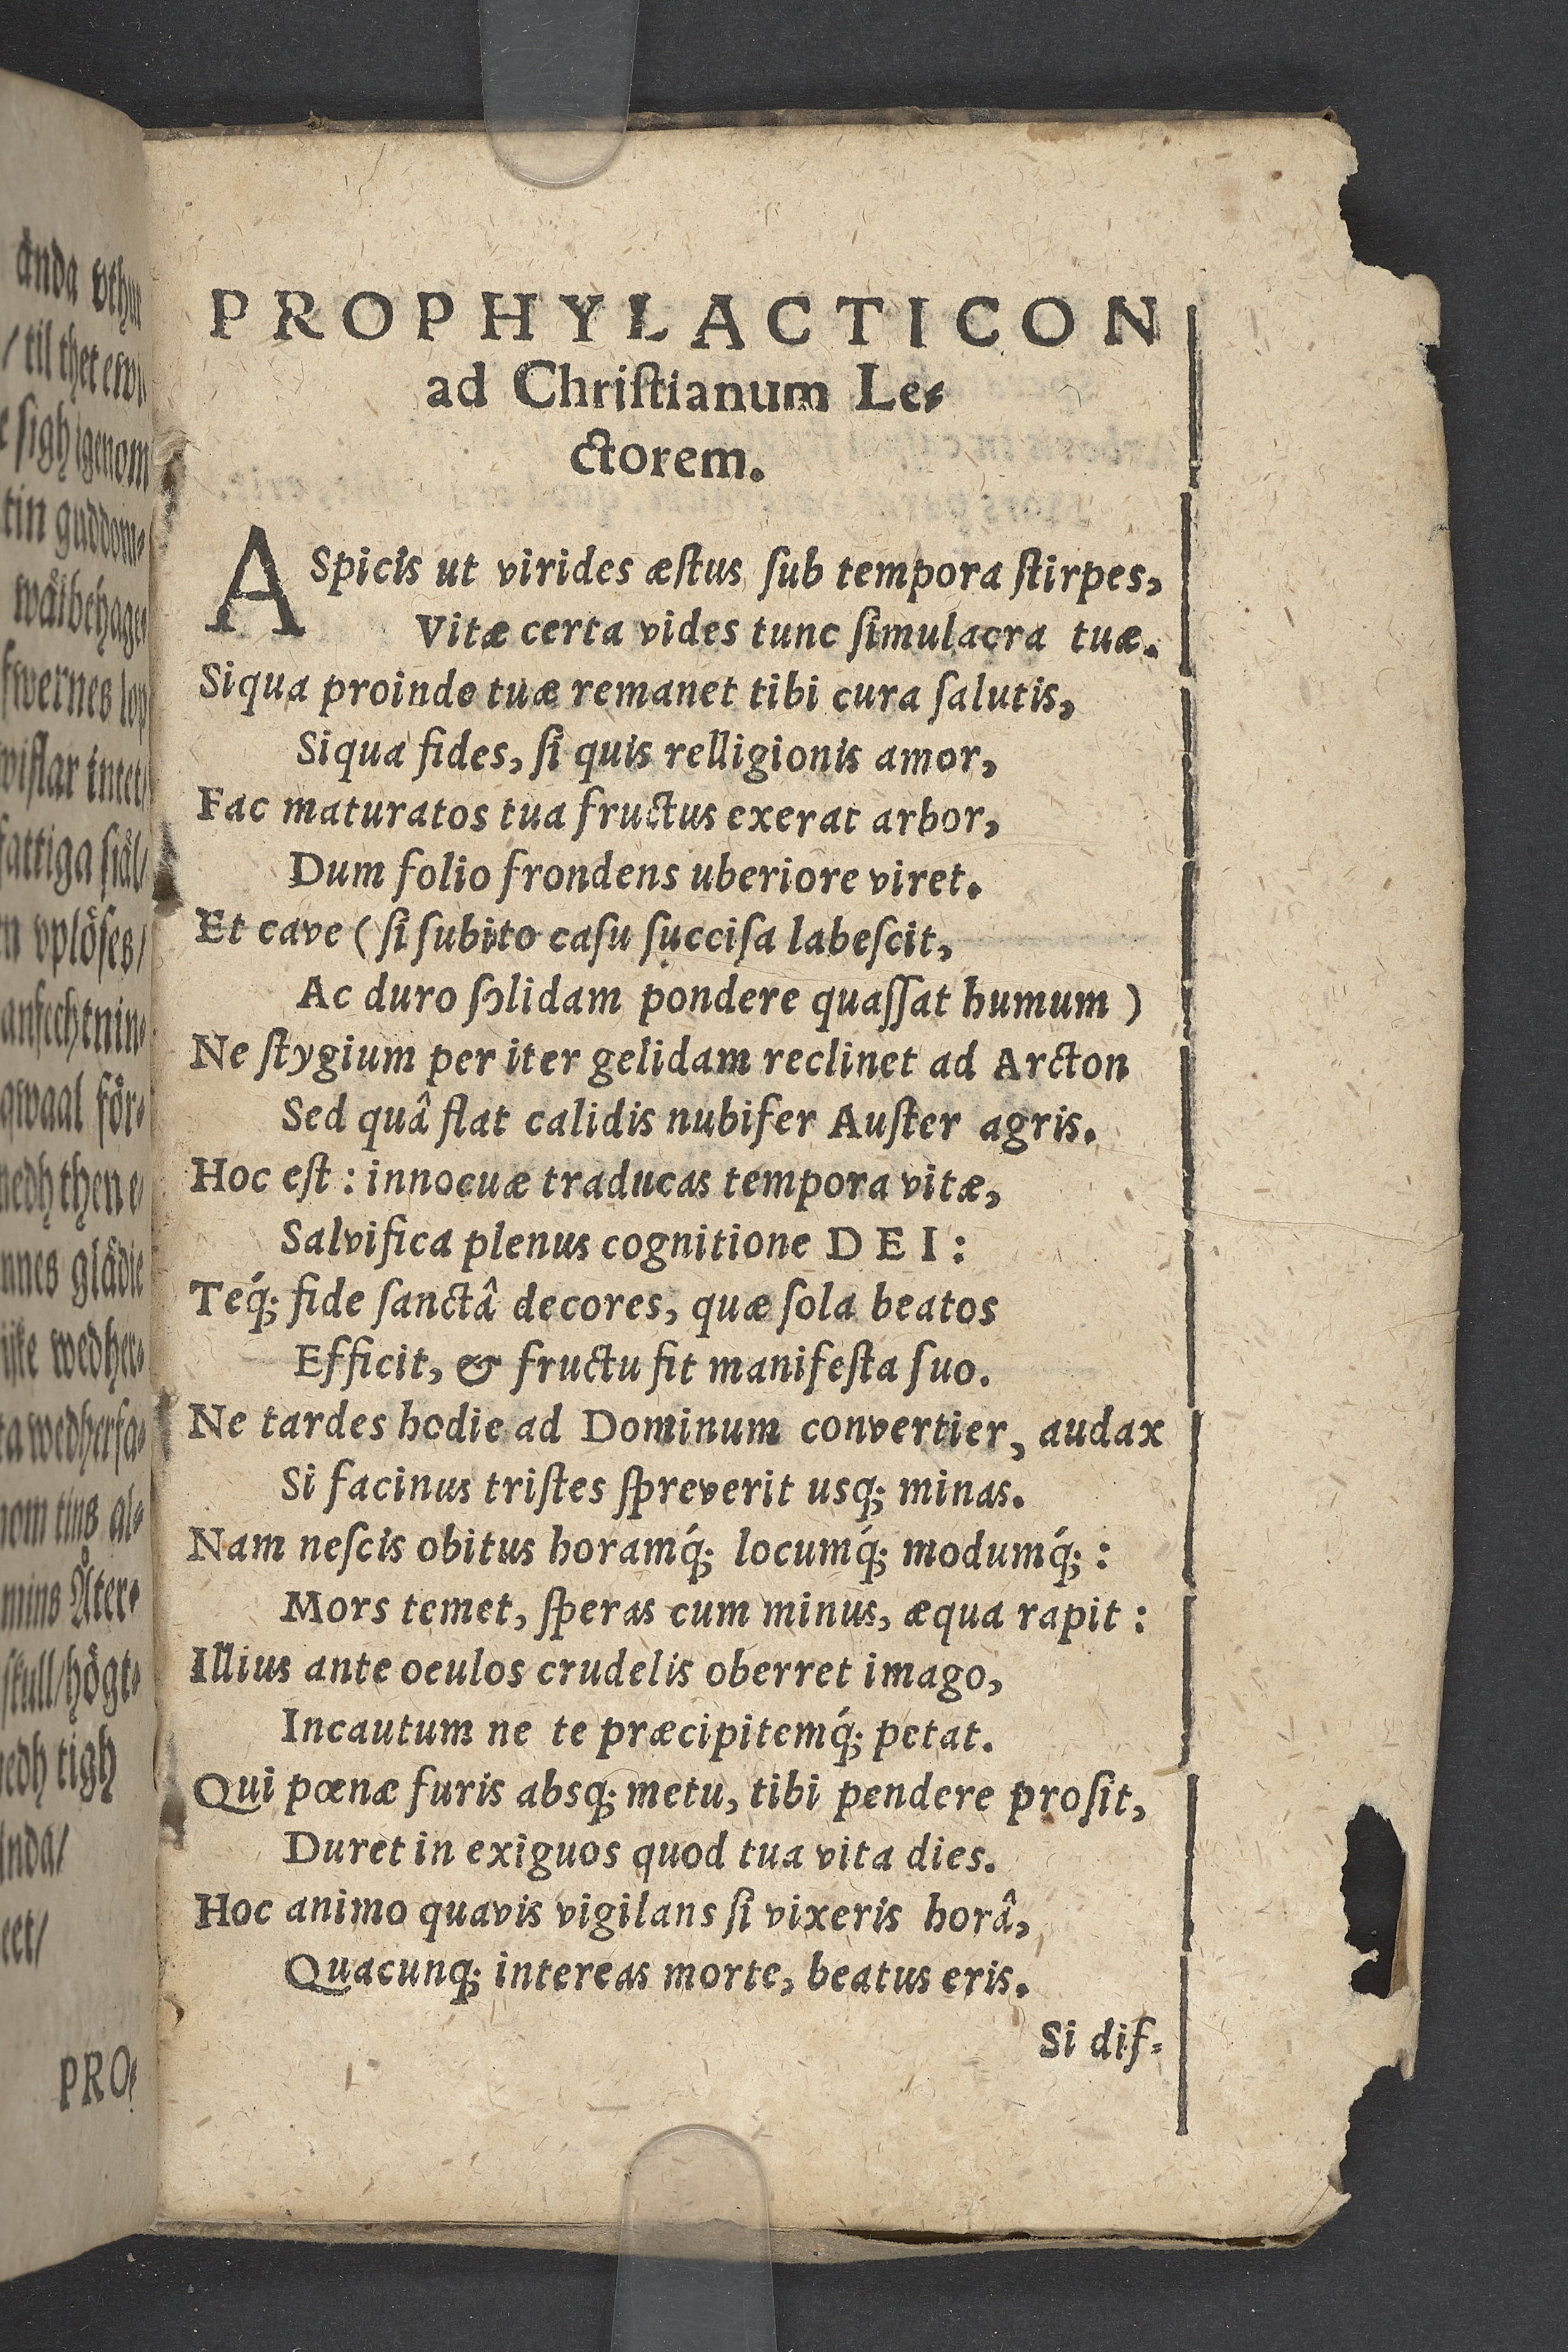 anda vthur
/ til thet ewi
sigh igenom
tin guddom-
wälbehage
fwernes lop
wistar intet/
fattiga siäl/
vplöses/
anfechtnin-
qwaal för-
medh then e
nnes glädie
wedher-
ta wedhersa-
tins al-
mins Åter-
skull/högt-
medh tigh
PRO-
PROPHYLACTICON
ad Chriſtianum Le-
ctorem.
ASpicis ut virides æſtus ſub tempora ſtirpes,
Vitæ certa vides tunc ſimulacra tuæ.
Siqua proinde tuæ remanet tibi cura ſalutis,
Siqua fides, ſi quis relligionis amor,
Fac maturatos tua fructus exerat arbor,
Dum folio frondens uberiore viret.
Et cave (ſi ſubito caſu ſucciſa labeſcit,
Ac duro ſolidam pondere quaſſat humum)
Ne ſtygium per iter gelidam reclinet ad Arcton
Sed quâ flat calidis nubifer Auſter agris.
Hoc eſt : innocuæ traducas tempora vitæ,
Salvifica plenus cognitione DEI :
Teq́; fide ſanctâ decores, quæ ſola beatos
Efficit, & fructu fit manifeſta ſuo.
Ne tardes hodie ad Dominum convertier, audax
Si facinus triſtes ſpreverit usq; minas.
Nam neſcis obitus horamq́; locumq́; modumq́; :
Mors temet, ſperas cum minus, æqua rapit :
Illius ante oeulos crudelis oberret imago,
Incautum ne te præcipitemq́; petat.
Qui pœnæ furis absq; metu, tibi pendere proſit,
Duret in exiguos quod tua vita dies.
Hoc animo quavis vigilans ſi vixeris horâ,
Quacunq; intereas morte, beatus eris.
Si dif-